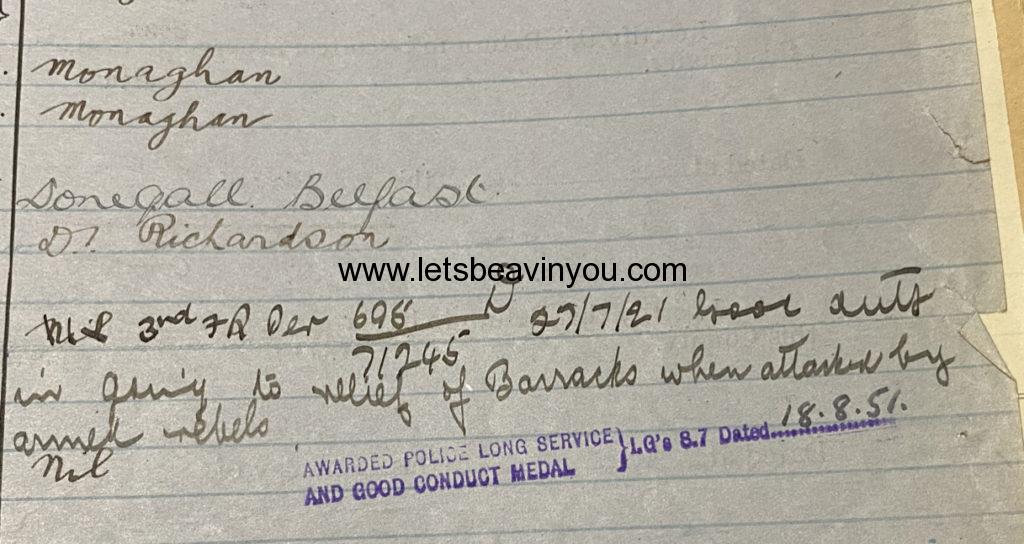 Monaghan
Monaghan
Donegall. Belfast.
Dr. Richardson
www.letsbeavinyou.com
3rd FR Der 696 D 27/7/21 Good duty
71245
in going to relief of Barracks when attacked by
armed rebels
Nil
AWARDED POLICE LONG SERVICE } L.G's S.7 Dated 18.8.51.
AND GOOD CONDUCT MEDAL